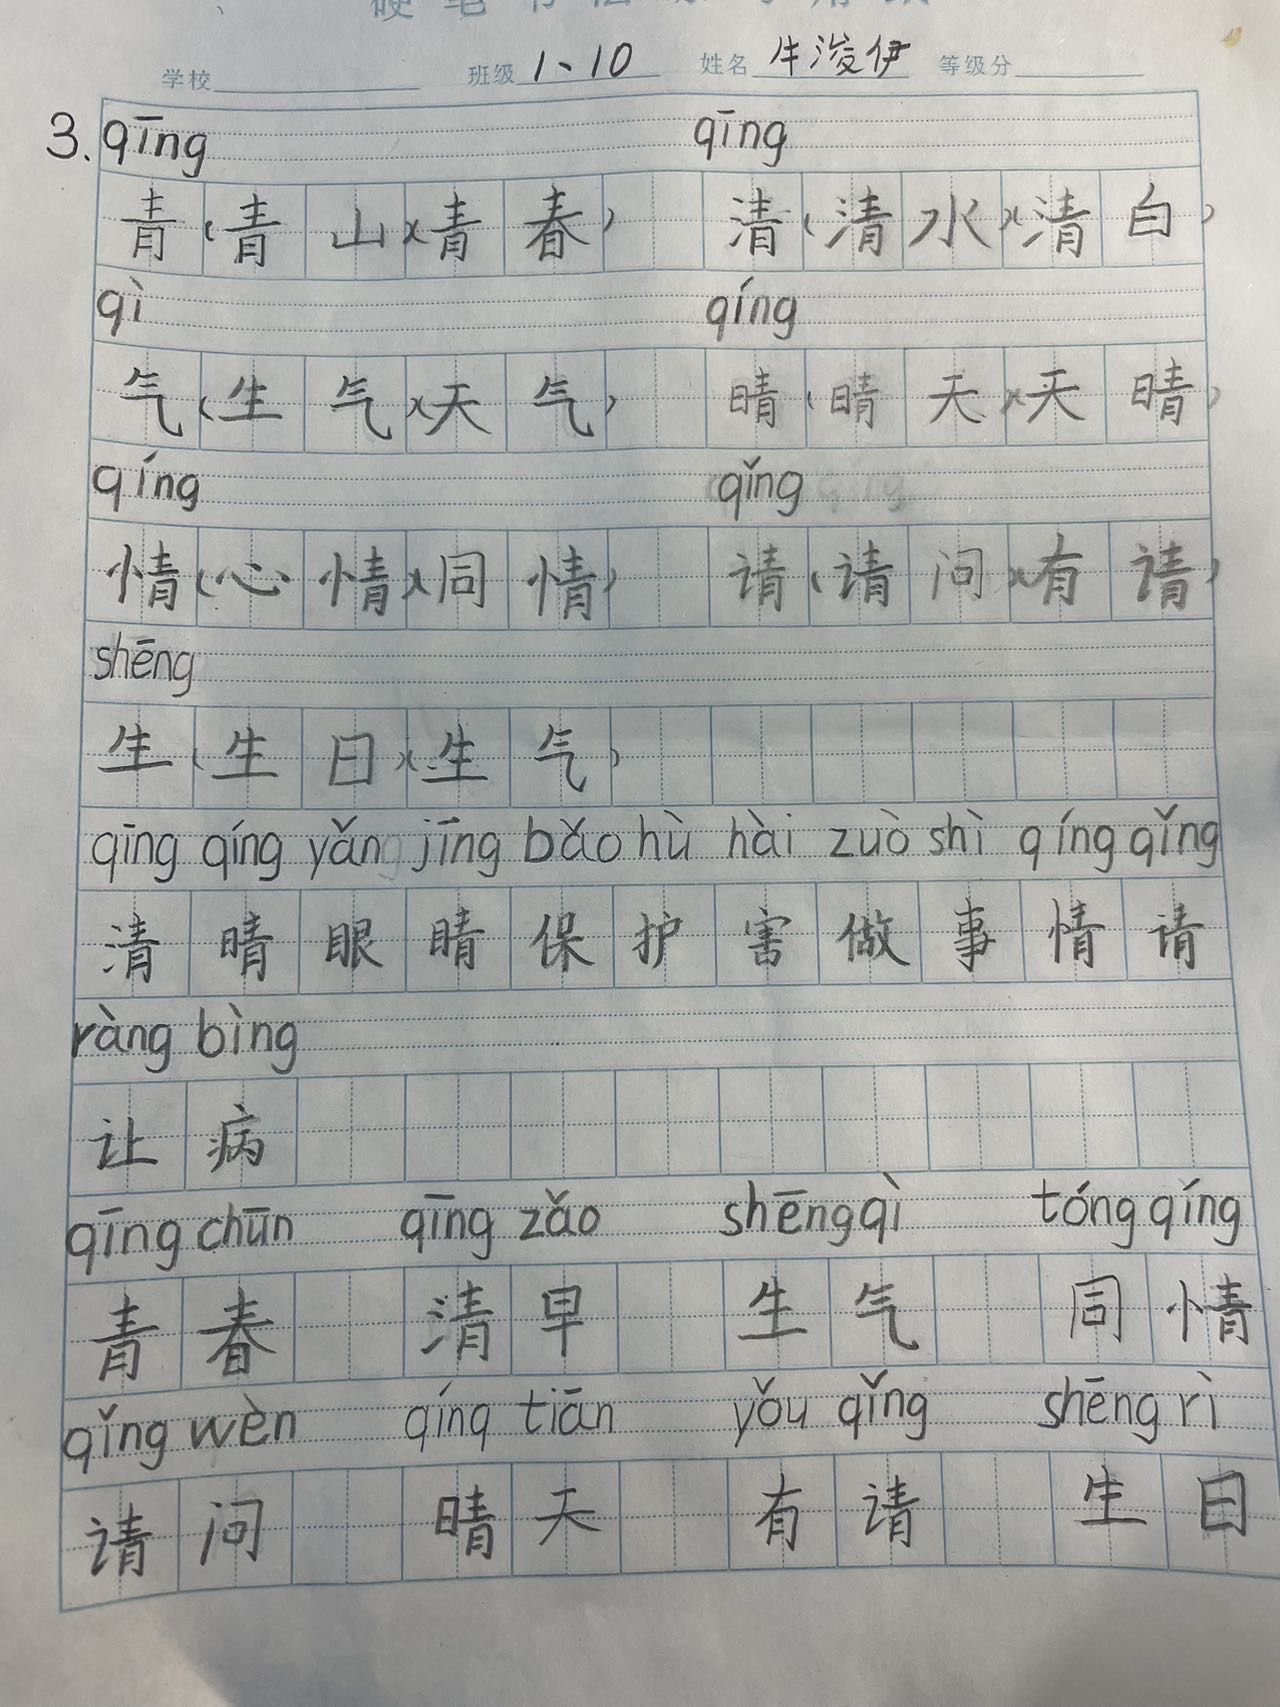 学校 班级 1、10 姓名 牛浚伊 等级分
3. qīng qīng
青(青山)(青春) 清(清水)(清白)
qì qíng
气(生气)(天气) 晴(晴天)(天晴)
qíng qǐng
情(心情)(同情) 请(请问)(有请)
shēng
生(生日)(生气)
qīng qíng yǎn jīng bǎo hù hài zuò shì qíng qǐng
清 晴 眼 睛 保 护 害 做 事 情 请
ràng bìng
让 病
qīng chūn qīng zǎo shēng qì tóng qíng
青春 清早 生气 同情
qǐng wèn qíng tiān yǒu qǐng shēng rì
请问 晴天 有请 生日